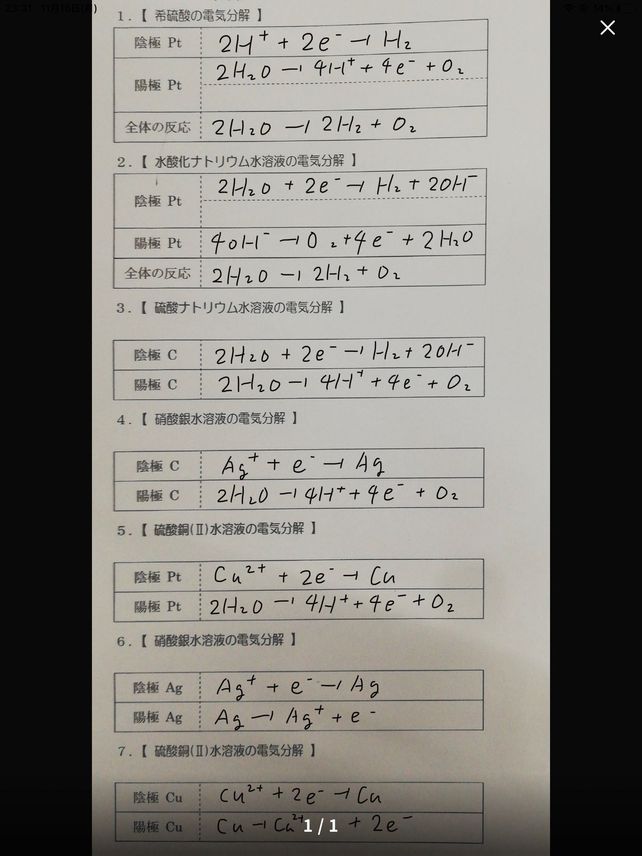 23:31 11月16日(月)
14%
1．【 希硫酸の電気分解 】
陰極 Pt 2H⁺ + 2e⁻ → H₂
陽極 Pt 2H₂O → 4H⁺ + 4e⁻ + O₂
全体の反応 2H₂O → 2H₂ + O₂
2．【 水酸化ナトリウム水溶液の電気分解 】
陰極 Pt 2H₂O + 2e⁻ → H₂ + 2OH⁻
陽極 Pt 4OH⁻ → O₂ + 4e⁻ + 2H₂O
全体の反応 2H₂O → 2H₂ + O₂
3．【 硫酸ナトリウム水溶液の電気分解 】
陰極 C 2H₂O + 2e⁻ → H₂ + 2OH⁻
陽極 C 2H₂O → 4H⁺ + 4e⁻ + O₂
4．【 硝酸銀水溶液の電気分解 】
陰極 C Ag⁺ + e⁻ → Ag
陽極 C 2H₂O → 4H⁺ + 4e⁻ + O₂
5．【 硫酸銅(Ⅱ)水溶液の電気分解 】
陰極 Pt Cu²⁺ + 2e⁻ → Cu
陽極 Pt 2H₂O → 4H⁺ + 4e⁻ + O₂
6．【 硝酸銀水溶液の電気分解 】
陰極 Ag Ag⁺ + e⁻ → Ag
陽極 Ag Ag → Ag⁺ + e⁻
7．【 硫酸銅(Ⅱ)水溶液の電気分解 】
陰極 Cu Cu²⁺ + 2e⁻ → Cu
陽極 Cu Cu → Cu²⁺ + 2e⁻
1 / 1